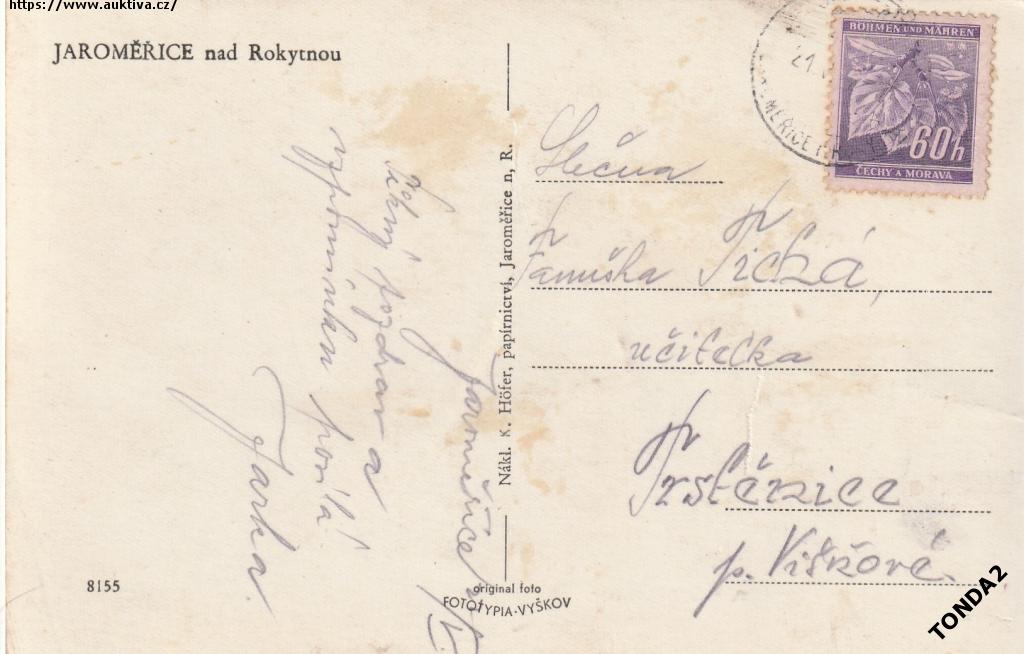 https://www.auktiva.cz/
JAROMĚŘICE nad Rokytnou
BÖHMEN UND MÄHREN
60h
ČECHY A MORAVA
21.
MĚŘICE
Jaroměřice
pozdrav a
vzpomínku posílá
Jarka.
Nákl. K. Höfer, papírnictví, Jaroměřice n, R.
Slečna
Fanuška Tichá,
učitelka
Trstěnice
p. Višňové.
8155
original foto
FOTOTYPIA-VYŠKOV
TONDA2